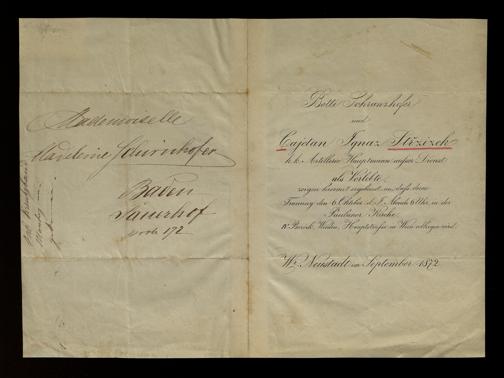 Mademoiselle
Baden
Sauerhof
172
Betti Schranzhofer
und
Cajetan Ignaz Střizek
k. k. Artillerie Hauptmann außer Dienst
als Verlobte
zeigen hiermit ergebenst an, daß deren
Trauung den 6. Oktober d. J. Abends 6 Uhr, in der
Pauliner Kirche
IV. Bezirk Wieden, Hauptstraße in Wien vollzogen wird.
Wr. Neustadt im September 1872